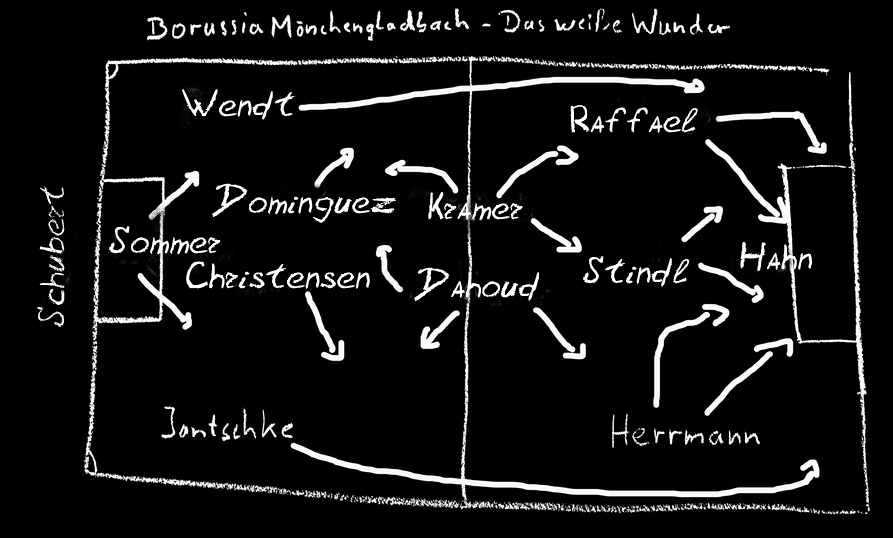 Borussia Mönchengladbach - Das weiße Wunder
Wendt
Raffael
Dominguez
Kramer
Schubert
Sommer
Hahn
Christensen
Dahoud
Stindl
Jantschke
Herrmann